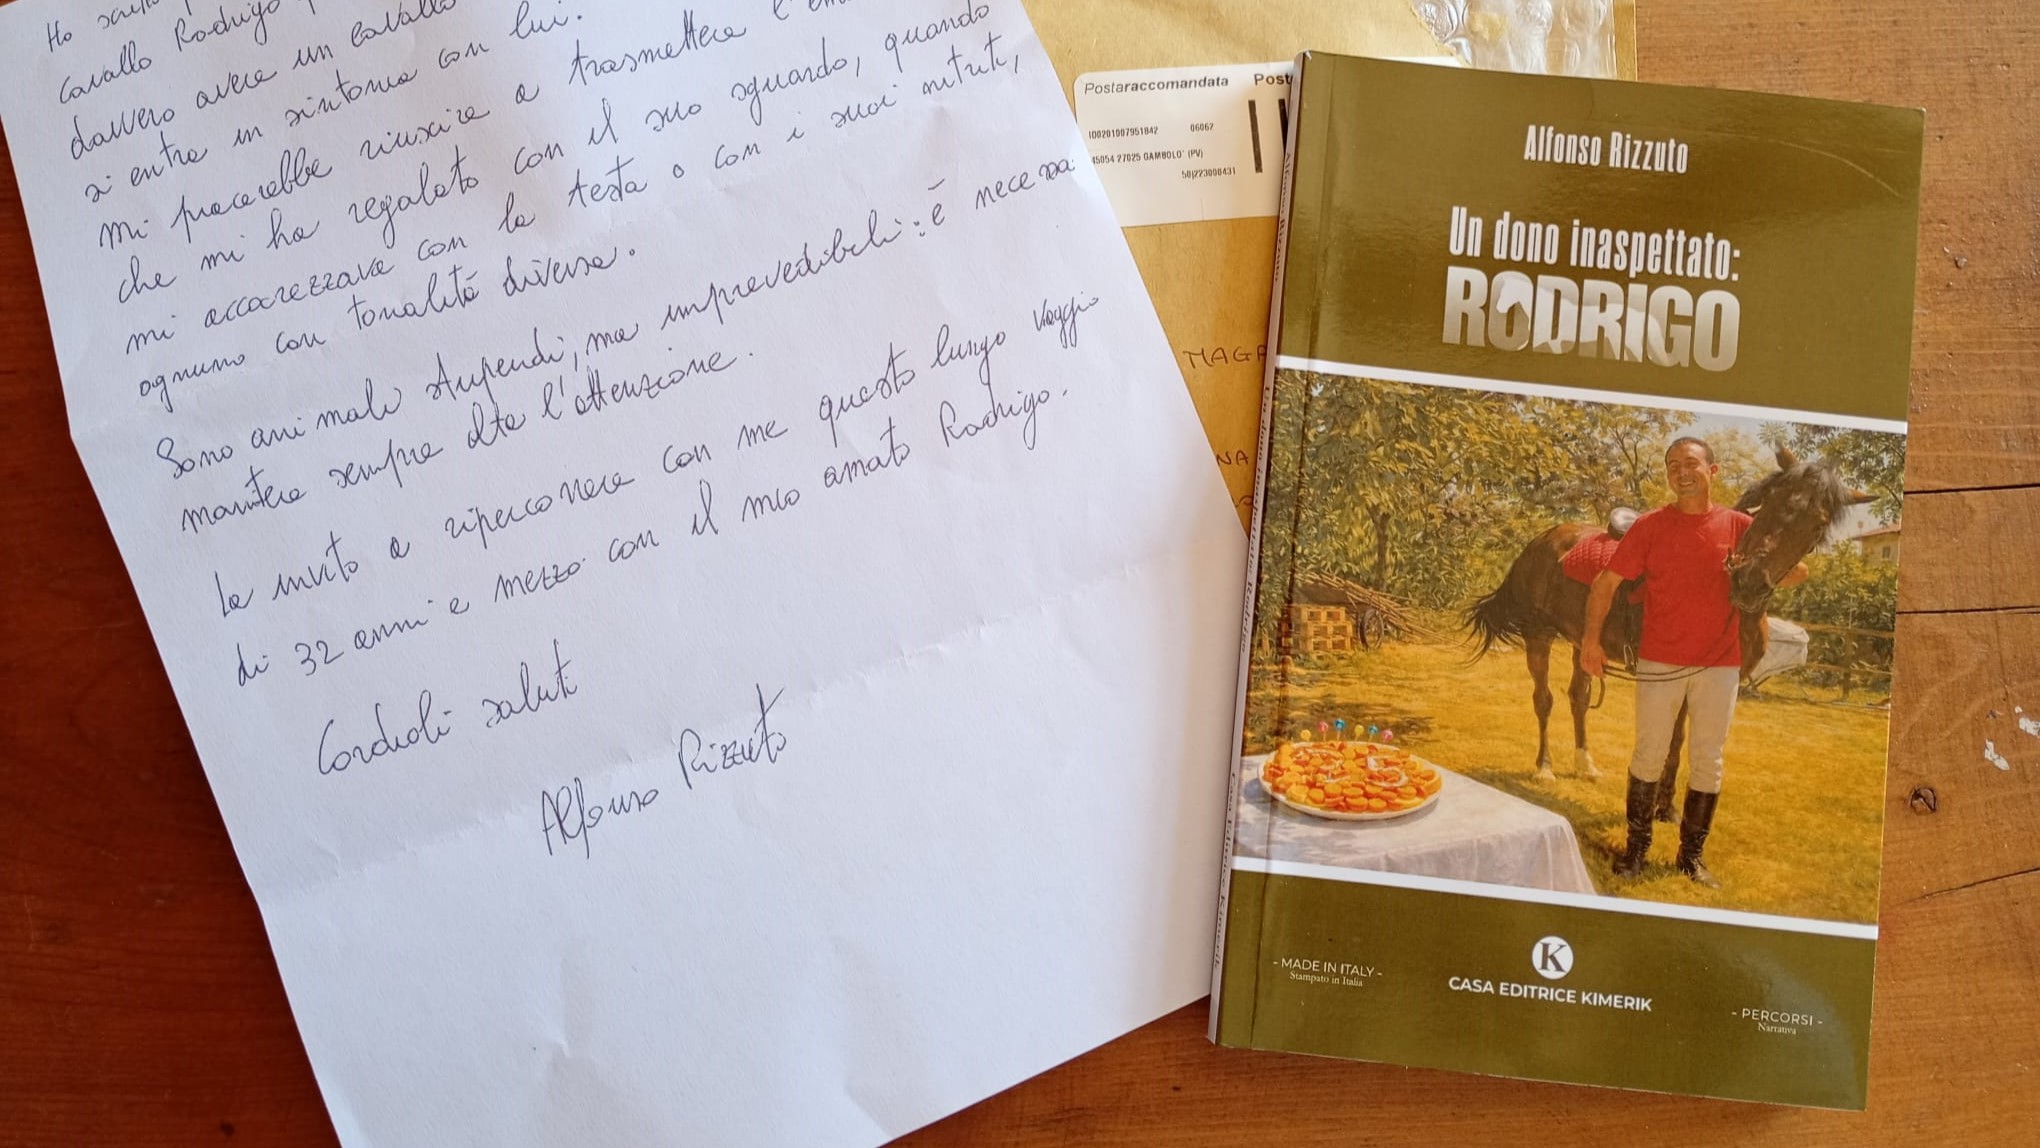 Ho
cavallo Rodrigo
davvero avere un cavallo
si entra in sintonia con lui.
mi piacerebbe riuscire a trasmettere l'
che mi ha regalato con il suo sguardo, quando
mi accarezzava con la testa o con i suoi nitriti,
ognuno con tonalità diverse.
Sono animali stupendi, ma imprevedibili: è necessa
mantere sempre alta l'attenzione.
La invito a ripercorrere con me questo lungo viaggio
di 32 anni e mezzo con il mio amato Rodrigo.
Cordiali saluti
Alfonso Rizzuto
Postaraccomandata Post
ID0201007951842 06062
45054 27025 GAMBOLO' (PV)
MAGA
NA
Alfonso Rizzuto
Un dono inaspettato:
RODRIGO
- MADE IN ITALY -
Stampato in Italia
K
CASA EDITRICE KIMERIK
- PERCORSI -
Narrativa
Alfonso Rizzuto
Un dono inaspettato: Rodrigo
Casa Editrice Kimerik